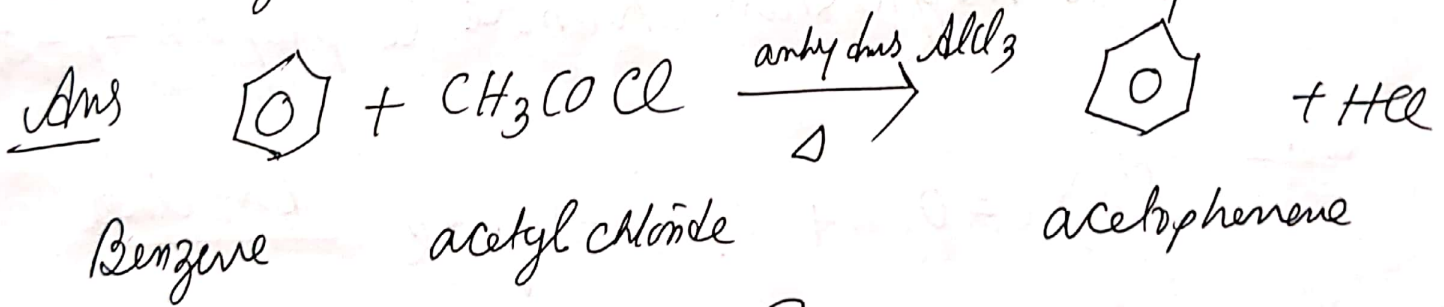 Ans + CH3COCl anhydrus AlCl3 + HCl
Δ
Benzene acetyl chloride acetophenene